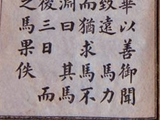 畢以善御聞
致遠馬力
而猶求馬不
淵曰其馬
後三日而
之馬果佚